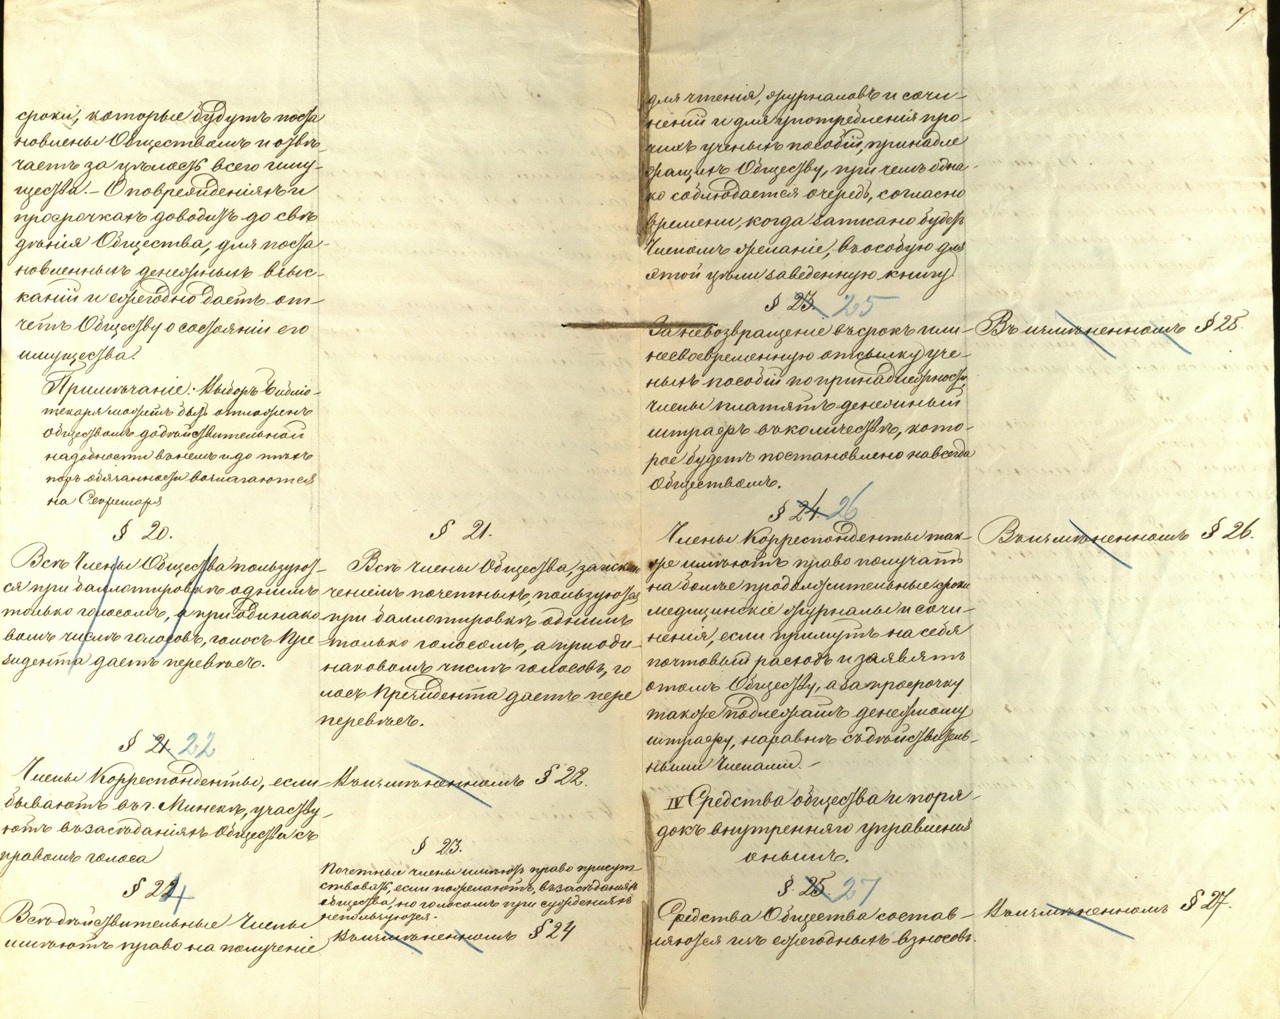 7.
сроки, которые будутъ поста
новлены Обществомъ и отвѣ-
чаетъ за цѣлость всего иму-
щества. – О поврежденіяхъ и
просрочкахъ доводитъ до свѣ
дѣнія Общества, для поста-
новленныхъ денежныхъ взыс-
каній и ежегодно даетъ от-
четъ Обществу о состояніи его
имущества.
Примѣчаніе: Выборъ библіо-
текаря можетъ быть отложенъ
обществомъ до дѣйствительной
надобности въ немъ и до тѣхъ
поръ обязанности возлагаются
на Секретаря
§ 20.
Всѣ Члены Общества пользуют-
ся при баллотировкѣ однимъ
только голосомъ, а при одинако
вомъ числѣ голосовъ, голосъ Пре-
зидента даетъ перевѣсъ.
§ 21. 22
Члены Корреспонденты, если
бываютъ въ г. Минскѣ, участву-
ютъ въ засѣданіяхъ Общества съ
правомъ голоса
§ 224
Всѣ дѣйствительные Члены
имѣютъ право на полученіе
§ 21.
Всѣ члены Общества, за исклю
ченіемъ почетныхъ, пользуются
при баллотировкѣ однимъ
только голосомъ, а при оди-
наковомъ числѣ голосовъ, го
лосъ Президента даетъ пере
перевѣсъ.
Въ измѣненномъ § 22.
§ 23.
Почетные члены имѣютъ право присут
ствовать, если пожелаютъ, въ засѣданіяхъ
общества, но голосомъ при сужденіяхъ
не пользуются.
Въ измѣненномъ § 24
для чтенія, журналовъ и сочи-
неній и для употребленія про-
чихъ ученыхъ пособій, принадле
жащихъ Обществу, при чемъ одна-
ко соблюдается очередь, согласно
времени, когда записано будетъ
Членомъ желаніе, въ особую для
этой цѣли заведенную книгу
§ 23. 25
За невозвращеніе въ срокъ или
несвоевременную отсылку уче-
ныхъ пособій по принадлежности,
члены платятъ денежный
штрафъ въ количествѣ, кото-
рое будетъ постановлено навсегда
Обществомъ.
§ 24 26
Члены Корреспонденты так-
же имѣютъ право получать
на болѣе продолжительные сроки
медицинскіе журналы и сочи-
ненія, если примутъ на себя
почтовый расходъ и заявятъ
о томъ Обществу, а за просрочку
также подлежатъ денежному
штрафу, наравнѣ съ дѣйствитель-
ными Членами. –
IV Средства общества и поря-
докъ внутренняго управленія
онымъ.
§ 25 27
Средства Общества состав-
ляются изъ ежегодныхъ взносовъ
Въ измѣненномъ § 25.
Въ измѣненномъ § 26.
Въ измѣненномъ § 27.